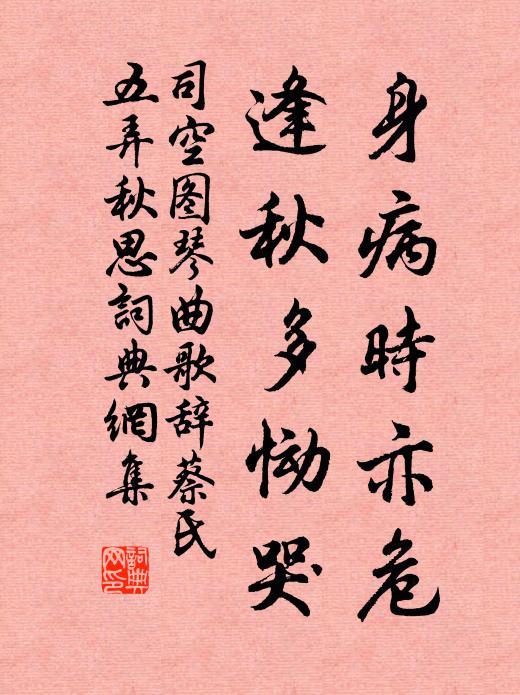 身病時亦危
逢秋多慟哭
司空图琴曲歌辞蔡氏
五弄秋思詞典網集
詞典
网印